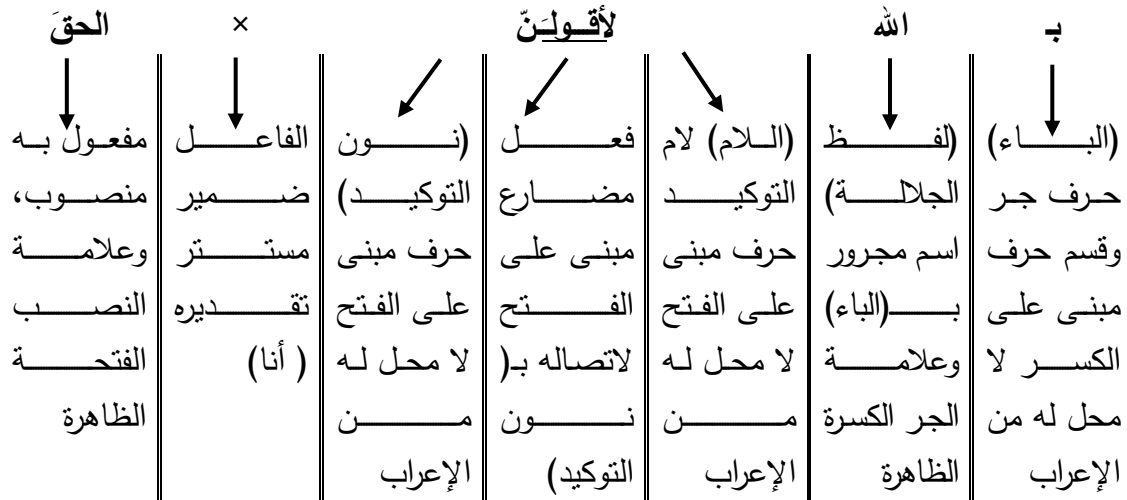 بـ الله لأقـولـَنّ × الحقَ
(البـاء) حـرف جـر وقسم حرف مبنـى علـى الكسـر لا محل له من الإعراب
(لفـظ الجلالـة) اسم مجرور بـ(الباء) وعلامـة الجر الكسرة الظاهرة
(الـلام) لام التوكيـد حرف مبنى علـى الفـتح لا محـل لـه مـن الإعراب
فعـل مضـارع مبنـى علـى الفـتح لاتصاله بـ( نـون التوكيد)
(نـون التوكيـد) حرف مبنى علـى الفـتح لا محـل لـه مـن الإعراب
الفاعـل ضـمير مستـتر تقـديره ( أنا)
مفعـول بـه منصـوب، وعلامـة النصـب الفتحـة الظاهرة